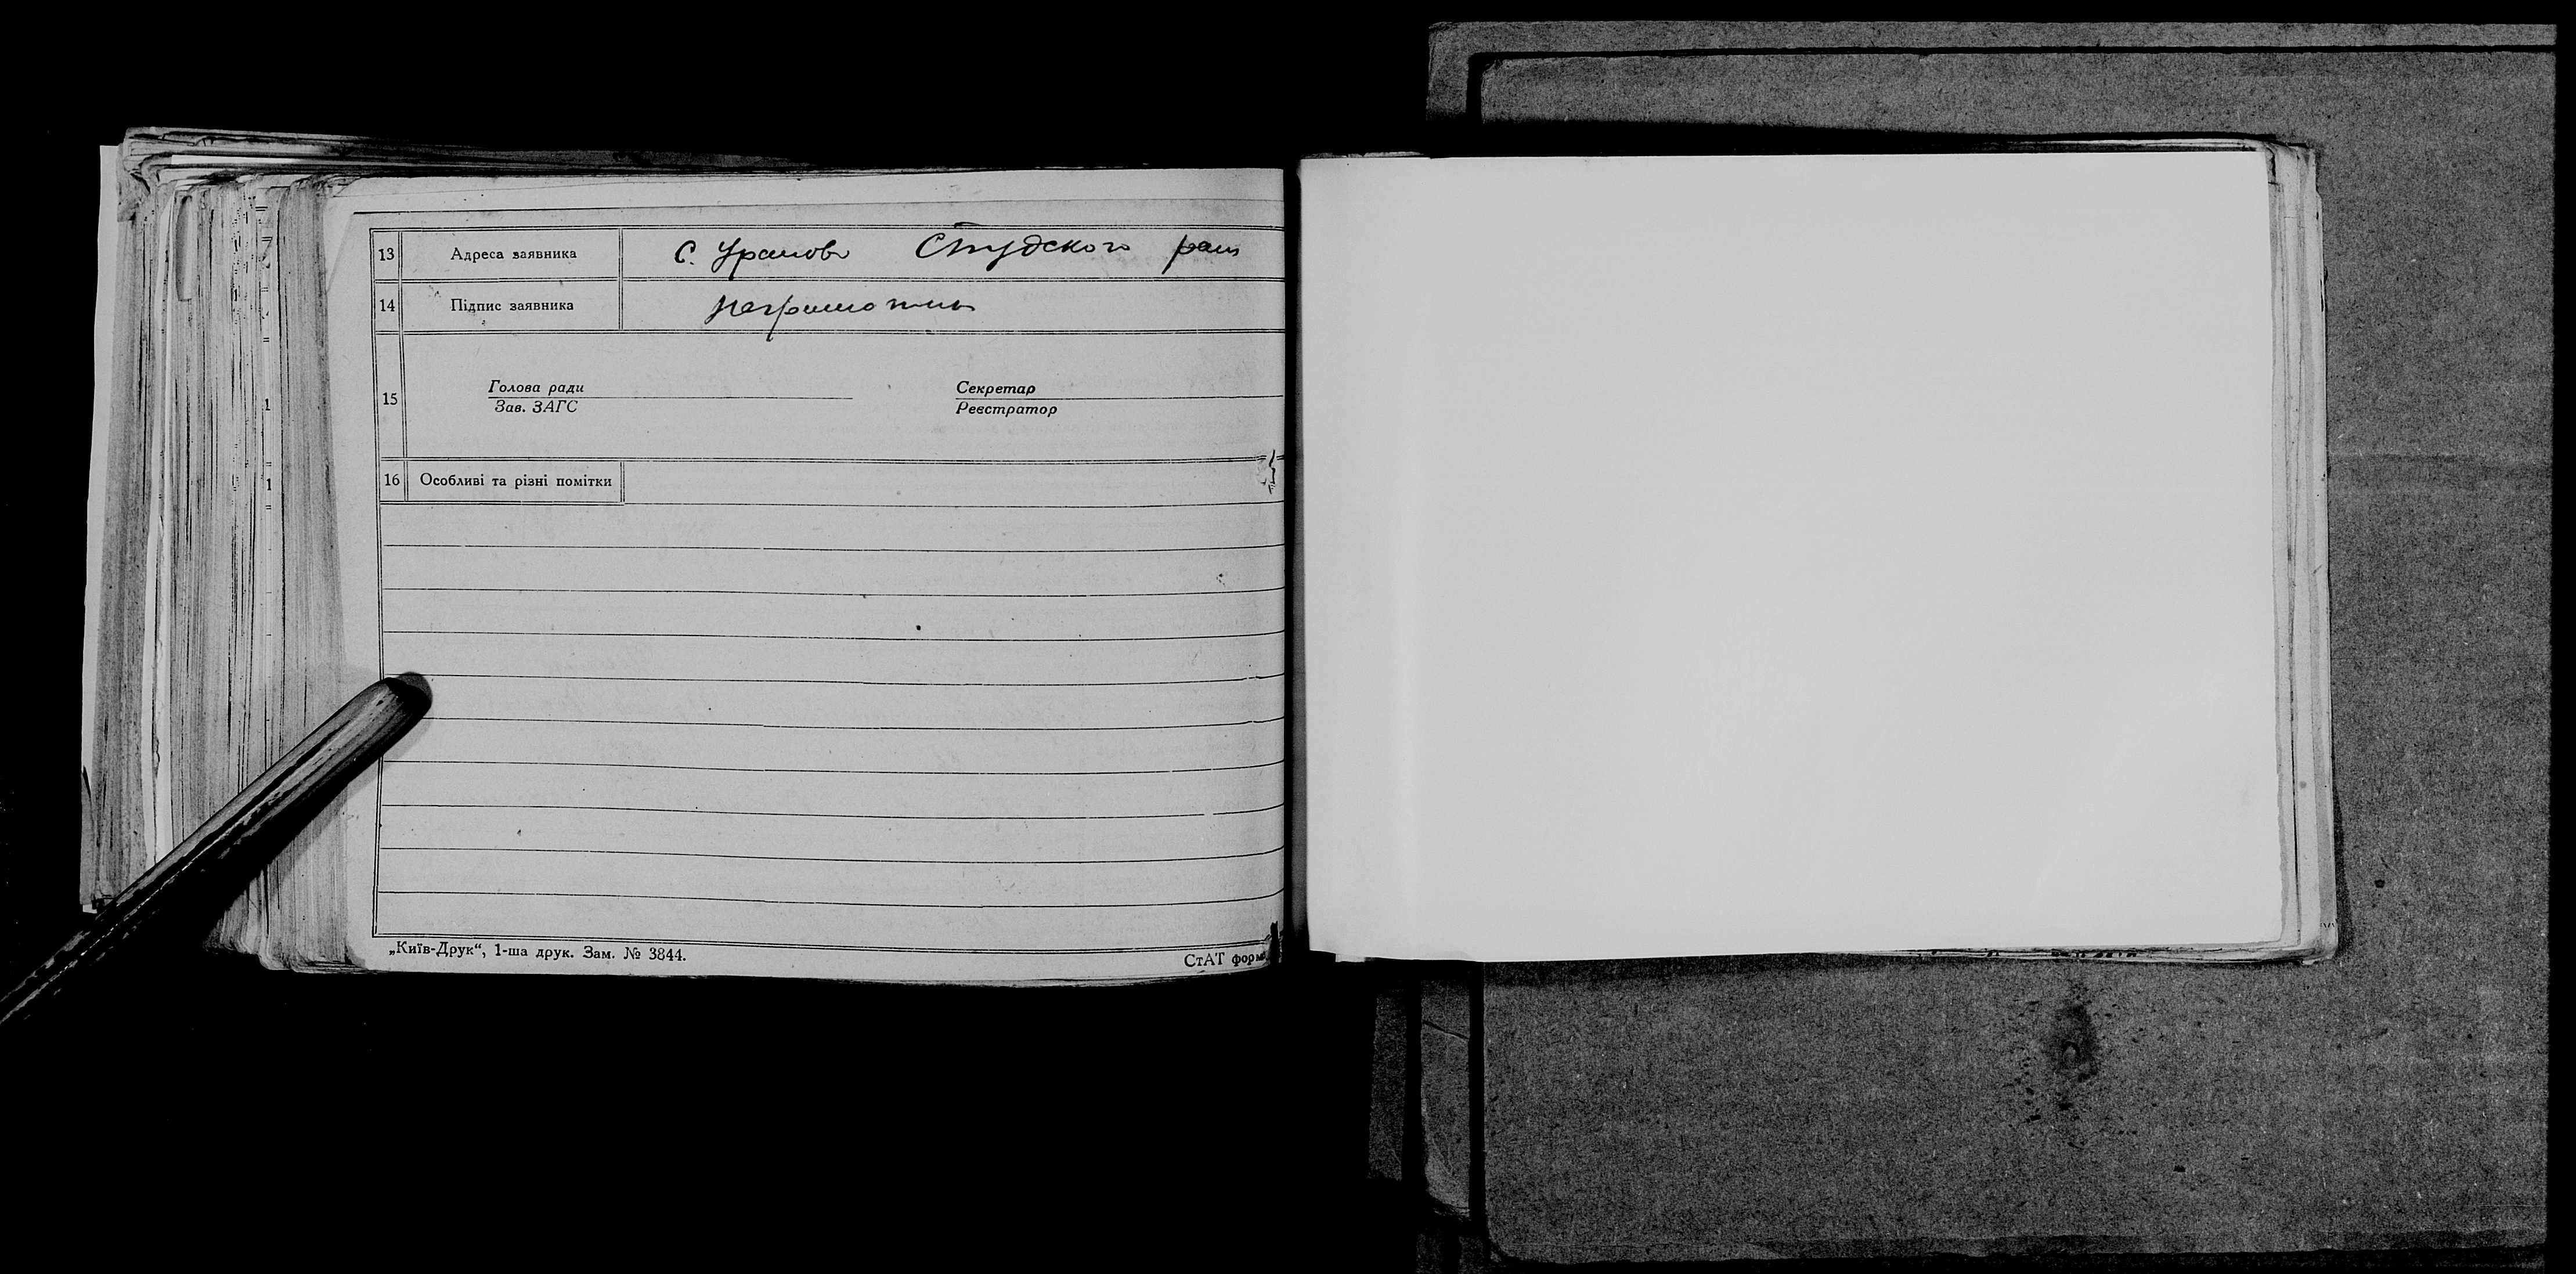 13 Адреса заявника С. Урамовъ Студского рай
14 Підпис заявника неграмотна
15 Голова ради Секретар
Зав. ЗАГС Реєстратор
16 Особливі та різні помітки
„Київ-Друк“, 1-ша друк. Зам. № 3844. СтАТ форма